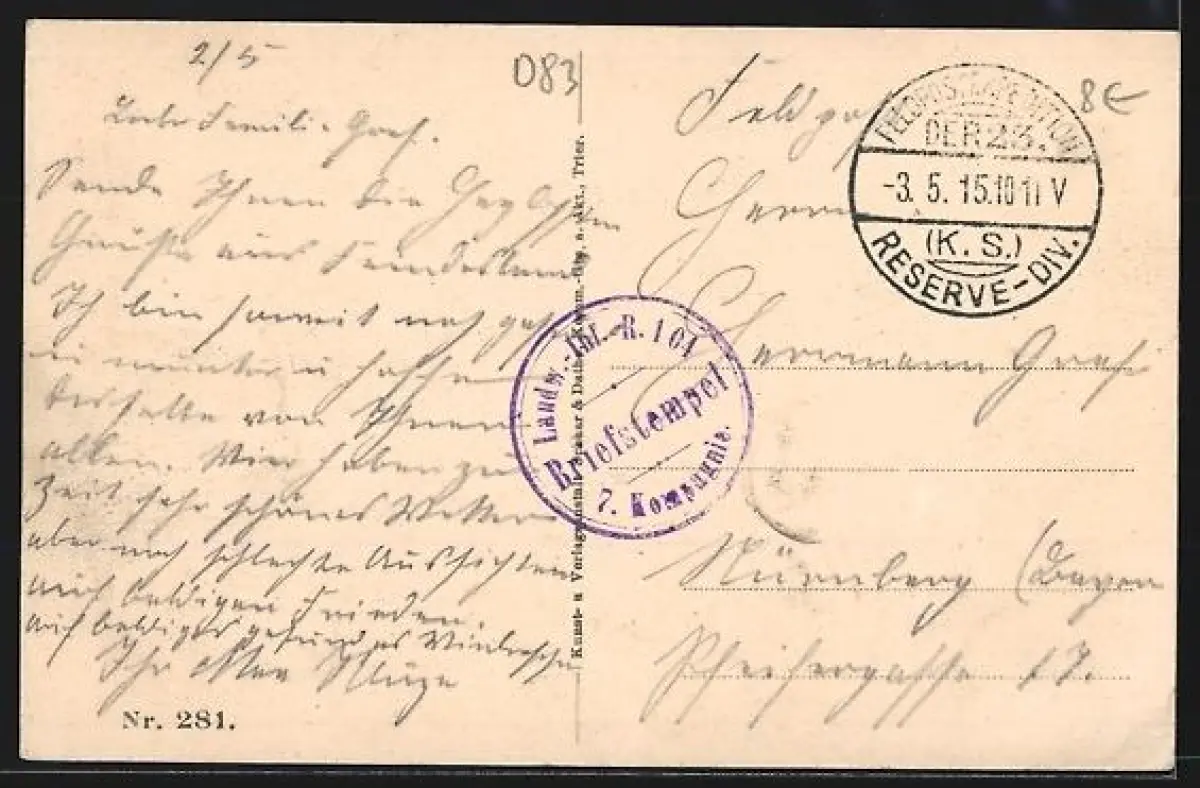 2/5
D83
8€
Liebe Famili. Graf.
Sende Ihnen die
Grüße aus Feindesland
Ich bin soweit noch
u munter u hoffe
dasselbe von Ihnen
allen. Wir haben zur
Zeit sehr schönes Wetter
aber noch schlechte Aussichten
auf baldigen Frieden.
auf baldiges gesundes Wiedersehn
Ihr
Nr. 281.
Kunst- u Verlagsanstalt & Dath, Komm.-Ges. a. Akt., Trier.
Landw.-Inf.-R. 104
Briefstempel
7. Kompagnie.
FELDPOSTEXPEDITION
DER 23.
-3. 5. 15. 10-11 V
(K. S.)
RESERVE-DIV.
Herrn
Herrmann Graf
Nürnberg (Bayern
Pfeifergasse 17.